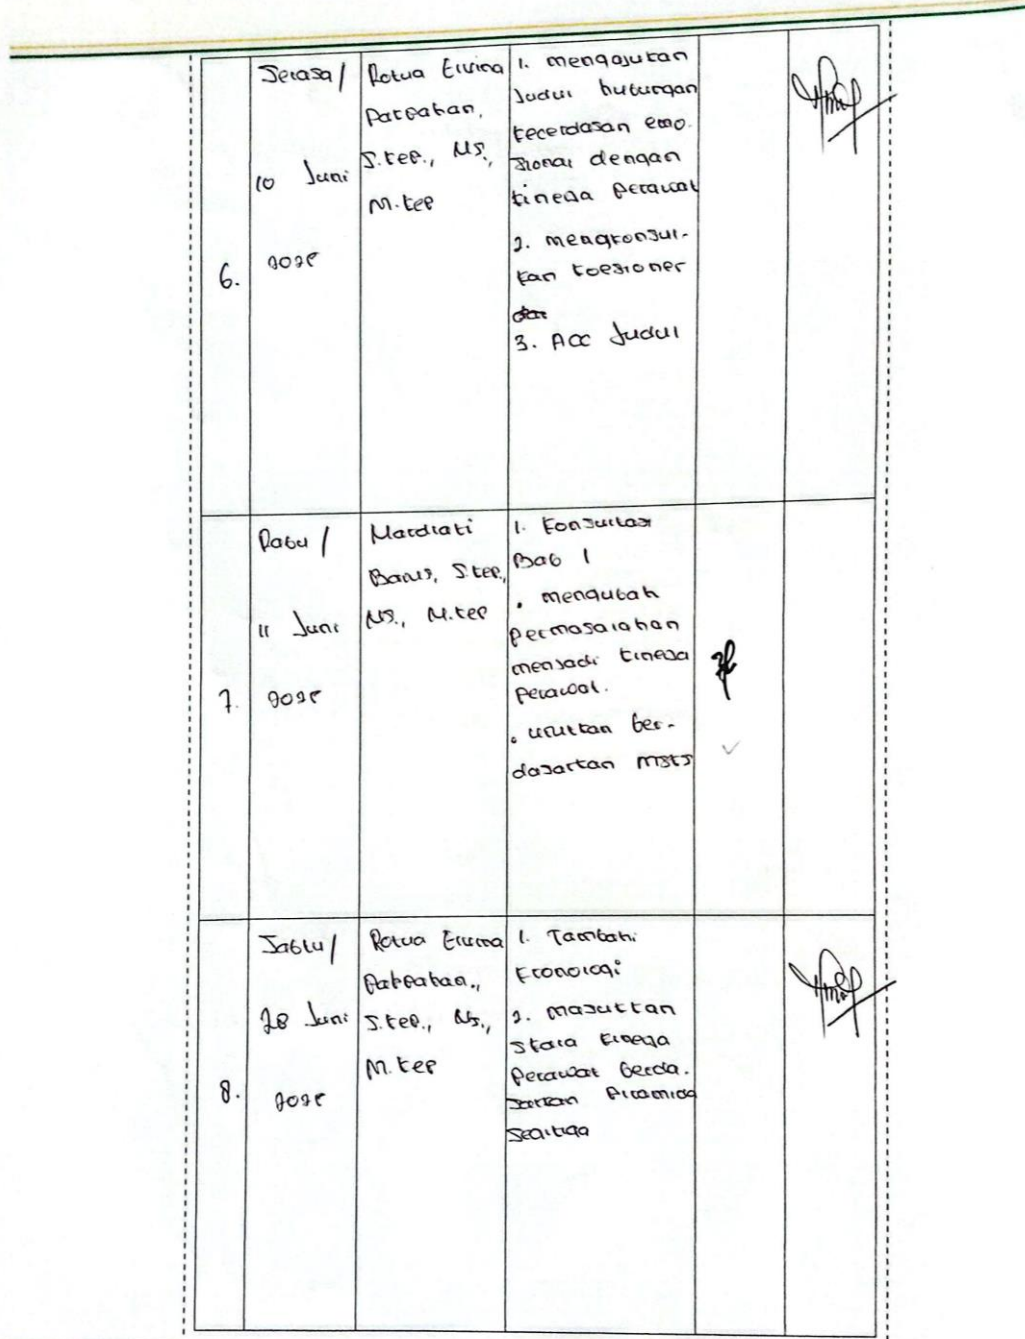 6.
Selasa /
10 Juni
2025
Rotua Elvina
Pakpahan,
S.kep., Ns.,
M.kep
1. mengajukan
Judul hubungan
kecerdasan emo-
sional dengan
kinerja perawat
2. mengkonsul-
kan koesioner
3. Acc Judul
7.
Rabu /
11 Juni
2025
Mardiati
Barus, S.kep,
Ns., M.kep
1. Konsultasi
Bab 1
• mengubah
permasalahan
menjadi kinerja
perawat.
• urutkan ber-
dasarkan msks
8.
Sabtu /
28 Juni
2025
Rotua Elvina
Pakpahan.,
S.kep., Ns.,
M.kep
1. Tambahi
kronologi
2. masukkan
skala kinerja
perawat berda-
sarkan piramida
segitiga